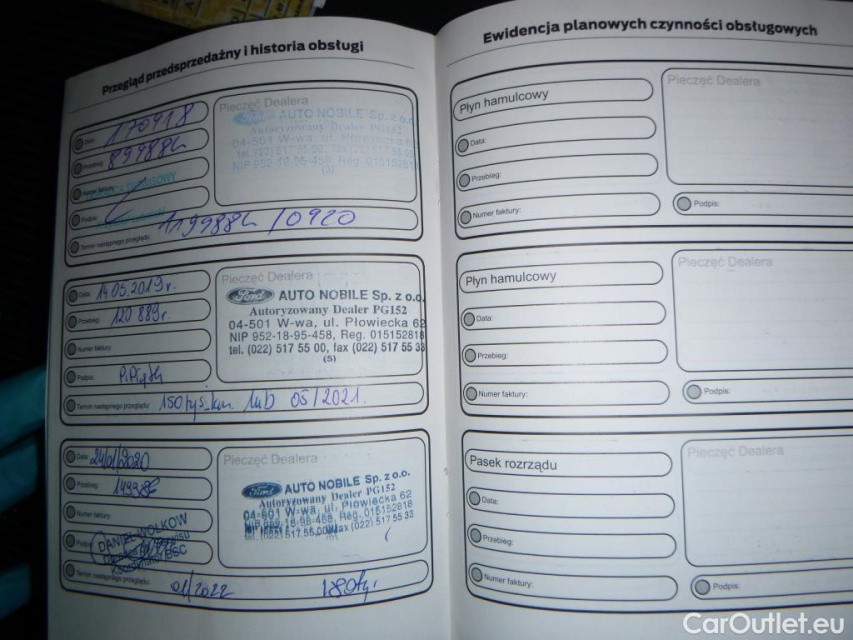 Przegląd przedsprzedażny i historia obsługi
Data: 170918
Przebieg: 89988
Numer faktury:
Podpis:
Termin następnego przeglądu: 119988 / 0920
Pieczęć Dealera
Ford AUTO NOBILE Sp. z o.o.
Autoryzowany Dealer PG152
04-501 W-wa, ul. Płowiecka
tel. (022) 517 55 00,
NIP 952-18-95-458, Reg. 01515281
(5)
Data: 14.05.2019r.
Przebieg: 120 889r.
Numer faktury:
Podpis:
Termin następnego przeglądu: 150 tys. km lub 05/2021.
Pieczęć Dealera
Ford AUTO NOBILE Sp. z o.o.
Autoryzowany Dealer PG152
04-501 W-wa, ul. Płowiecka 62
NIP 952-18-95-458, Reg. 015152818
tel. (022) 517 55 00, fax (022) 517 55 33
(5)
Data: 24/01/2020
Przebieg:
Numer faktury:
DANIEL WOŁKOW
Termin następnego przeglądu: 01/2022 180 ty.
Pieczęć Dealera
Ford AUTO NOBILE Sp. z o.o.
Autoryzowany Dealer PG152
04-501 W-wa, ul. Płowiecka 62
NIP 952-18-95-458, Reg. 015152818
tel. (022) 517 55 00, fax (022) 517 55 33
Ewidencja planowych czynności obsługowych
Płyn hamulcowy
Data:
Przebieg:
Numer faktury:
Pieczęć Dealera
Podpis:
Płyn hamulcowy
Data:
Przebieg:
Numer faktury:
Pieczęć Dealera
Podpis:
Pasek rozrządu
Data:
Przebieg:
Numer faktury:
Pieczęć Dealera
Podpis:
CarOutlet.eu